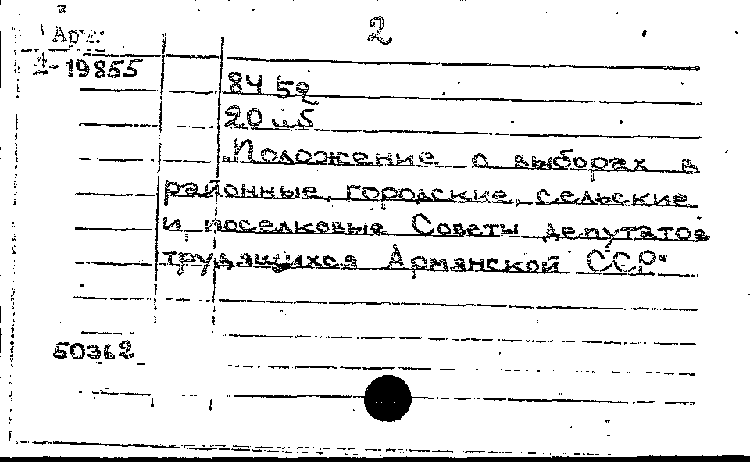 2
Арм
2-19855
84 52
20 и 5
„Положение о выборах в
районные, городские, сельские
и поселковые Советы депутатов
трудящихся Армянской ССР"
50362